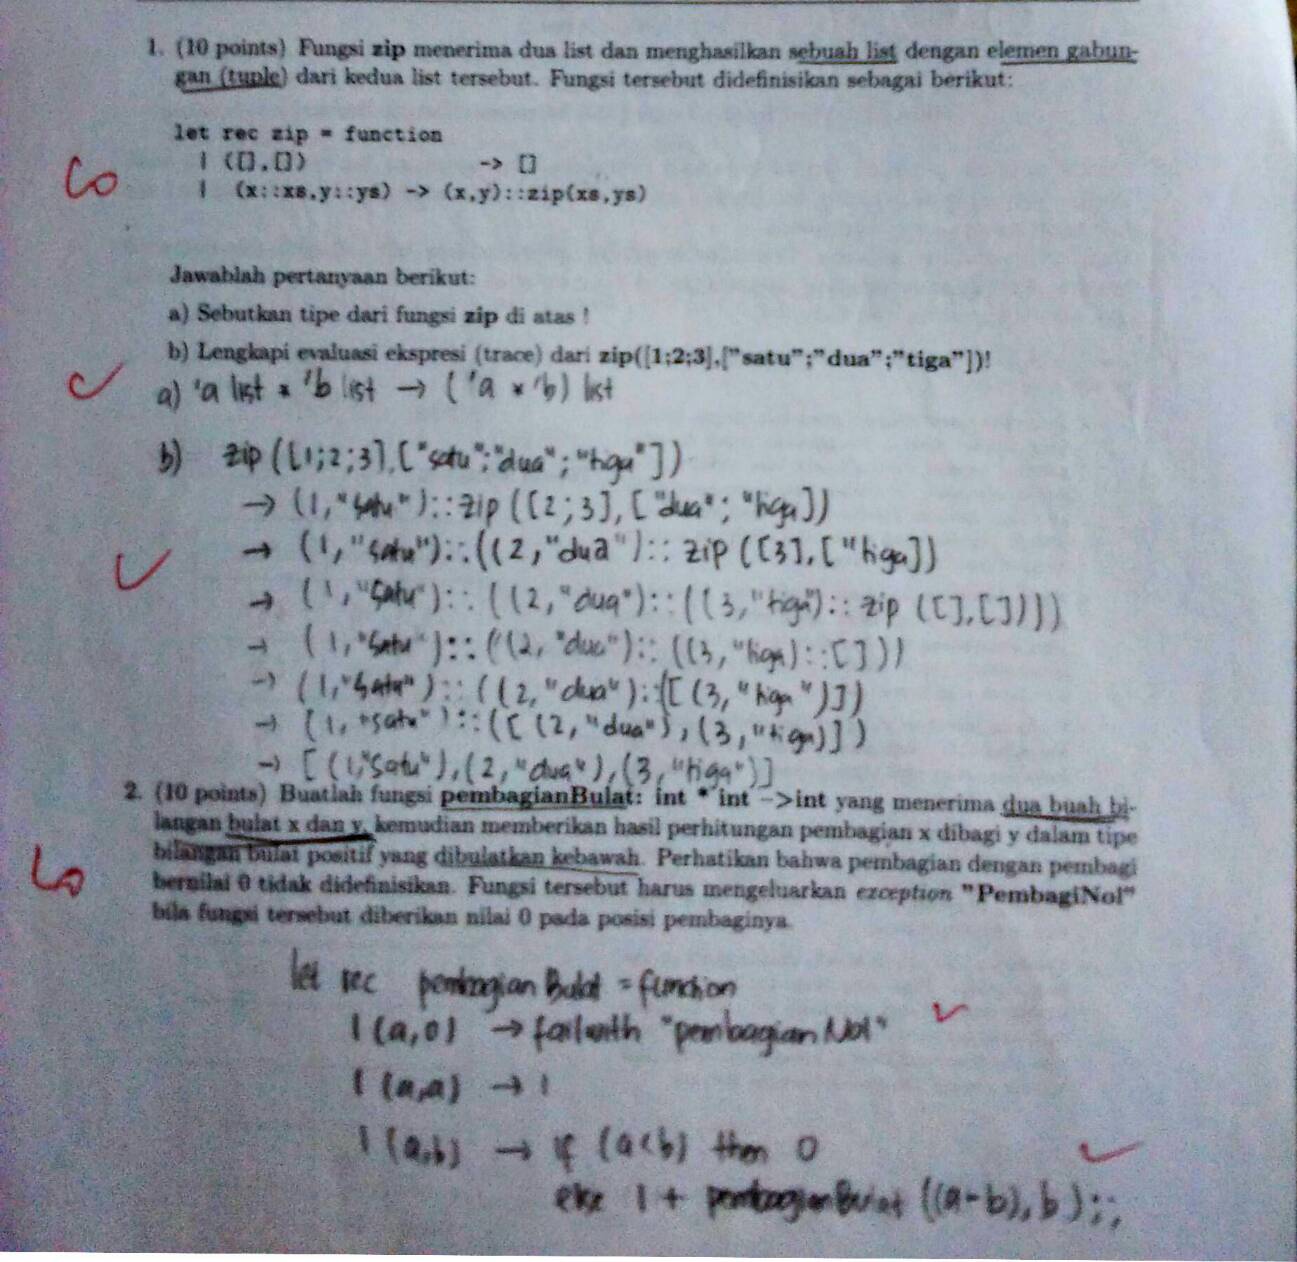 1. (10 points) Fungsi zip menerima dua list dan menghasilkan sebuah list dengan elemen gabun-
gan (tuple) dari kedua list tersebut. Fungsi tersebut didefinisikan sebagai berikut:
let rec zip = function
| ([],[]) -> []
| (x::xs,y::ys) -> (x,y)::zip(xs,ys)
Jawablah pertanyaan berikut:
a) Sebutkan tipe dari fungsi zip di atas !
b) Lengkapi evaluasi ekspresi (trace) dari zip([1;2;3],["satu";"dua";"tiga"])!
a) 'a list * 'b list → ('a * 'b) list
b) zip ([1;2;3],["satu";"dua";"tiga"])
→ (1,"satu")::zip ([2;3],["dua"; "tiga])
→ (1,"satu")::((2,"dua")::zip ([3],["tiga])
→ (1,"satu")::((2,"dua")::((3,"tiga")::zip ([],[])))
→ (1,"satu")::((2,"dua")::((3,"tiga)::[]))
→ (1,"satu")::((2,"dua")::([(3,"tiga")])
→ (1,"satu")::([(2,"dua"),(3,"tiga)])
→ [(1,"satu"),(2,"dua"),(3,"tiga")]
2. (10 points) Buatlah fungsi pembagianBulat: int * int ->int yang menerima dua buah bi-
langan bulat x dan y, kemudian memberikan hasil perhitungan pembagian x dibagi y dalam tipe
bilangan bulat positif yang dibulatkan kebawah. Perhatikan bahwa pembagian dengan pembagi
bernilai 0 tidak didefinisikan. Fungsi tersebut harus mengeluarkan exception "PembagiNol"
bila fungsi tersebut diberikan nilai 0 pada posisi pembaginya.
let rec pembagian Bulat = function
| (a,0) → failwith "pembagian Nol"
| (a,a) → 1
| (a,b) → if (a<b) then 0
else 1 + pembagianBulat ((a-b),b);;